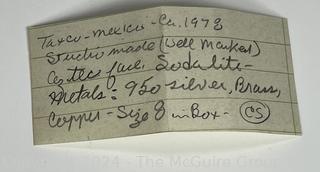 Taxco-Mexico-Ca. 1978
Studio made (Well Marked)
Aztec face. Sodalite-
Metals: 950 silver, Brass,
Copper-Size 8 in Box- CS
2024 - The McGuire Group